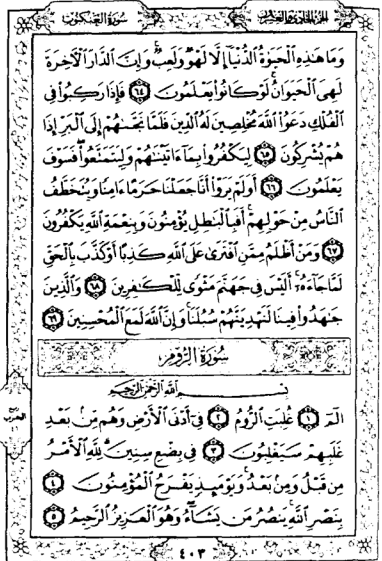 الجزء الحادي والعشرون
سورة العنكبوت
وَمَا هَٰذِهِ ٱلْحَيَوٰةُ ٱلدُّنْيَآ إِلَّا لَهْوٌ وَلَعِبٌ وَإِنَّ ٱلدَّارَ ٱلْءَاخِرَةَ
لَهِىَ ٱلْحَيَوَانُ لَوْ كَانُوا۟ يَعْلَمُونَ ٦٤ فَإِذَا رَكِبُوا۟ فِى
ٱلْفُلْكِ دَعَوُا۟ ٱللَّهَ مُخْلِصِينَ لَهُ ٱلدِّينَ فَلَمَّا نَجَّىٰهُمْ إِلَى ٱلْبَرِّ إِذَا
هُمْ يُشْرِكُونَ ٦٥ لِيَكْفُرُوا۟ بِمَآ ءَاتَيْنَٰهُمْ وَلِيَتَمَتَّعُوا۟ فَسَوْفَ
يَعْلَمُونَ ٦٦ أَوَلَمْ يَرَوْا۟ أَنَّا جَعَلْنَا حَرَمًا ءَامِنًا وَيُتَخَطَّفُ
ٱلنَّاسُ مِنْ حَوْلِهِمْ أَفَبِٱلْبَٰطِلِ يُؤْمِنُونَ وَبِنِعْمَةِ ٱللَّهِ يَكْفُرُونَ
٦٧ وَمَنْ أَظْلَمُ مِمَّنِ ٱفْتَرَىٰ عَلَى ٱللَّهِ كَذِبًا أَوْ كَذَّبَ بِٱلْحَقِّ
لَمَّا جَآءَهُۥٓ أَلَيْسَ فِى جَهَنَّمَ مَثْوًى لِّلْكَٰفِرِينَ ٦٨ وَٱلَّذِينَ
جَٰهَدُوا۟ فِينَا لَنَهْدِيَنَّهُمْ سُبُلَنَا وَإِنَّ ٱللَّهَ لَمَعَ ٱلْمُحْسِنِينَ ٦٩
سُورَةُ ٱلرُّومِ
بِسْمِ ٱللَّهِ ٱلرَّحْمَٰنِ ٱلرَّحِيمِ
الٓمٓ ١ غُلِبَتِ ٱلرُّومُ ٢ فِىٓ أَدْنَى ٱلْأَرْضِ وَهُم مِّنۢ بَعْدِ
غَلَبِهِمْ سَيَغْلِبُونَ ٣ فِى بِضْعِ سِنِينَ لِلَّهِ ٱلْأَمْرُ
مِن قَبْلُ وَمِنۢ بَعْدُ وَيَوْمَئِذٍ يَفْرَحُ ٱلْمُؤْمِنُونَ ٤
بِنَصْرِ ٱللَّهِ يَنصُرُ مَن يَشَآءُ وَهُوَ ٱلْعَزِيزُ ٱلرَّحِيمُ ٥
٤٠٣